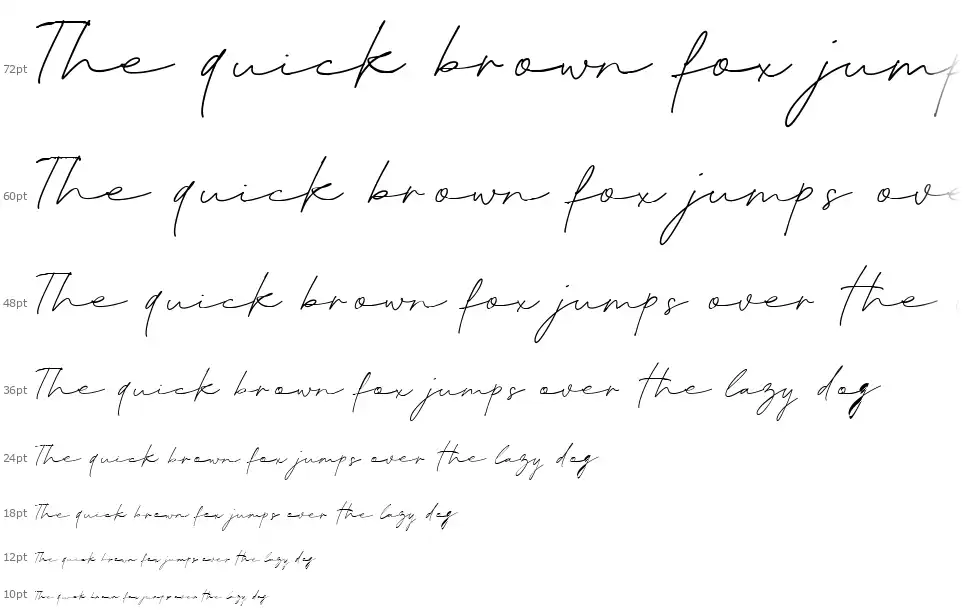 72pt The quick brown fox jump
60pt The quick brown fox jumps ove
48pt The quick brown fox jumps over the
36pt The quick brown fox jumps over the lazy dog
24pt The quick brown fox jumps over the lazy dog
18pt The quick brown fox jumps over the lazy dog
12pt The quick brown fox jumps over the lazy dog
10pt The quick brown fox jumps over the lazy dog